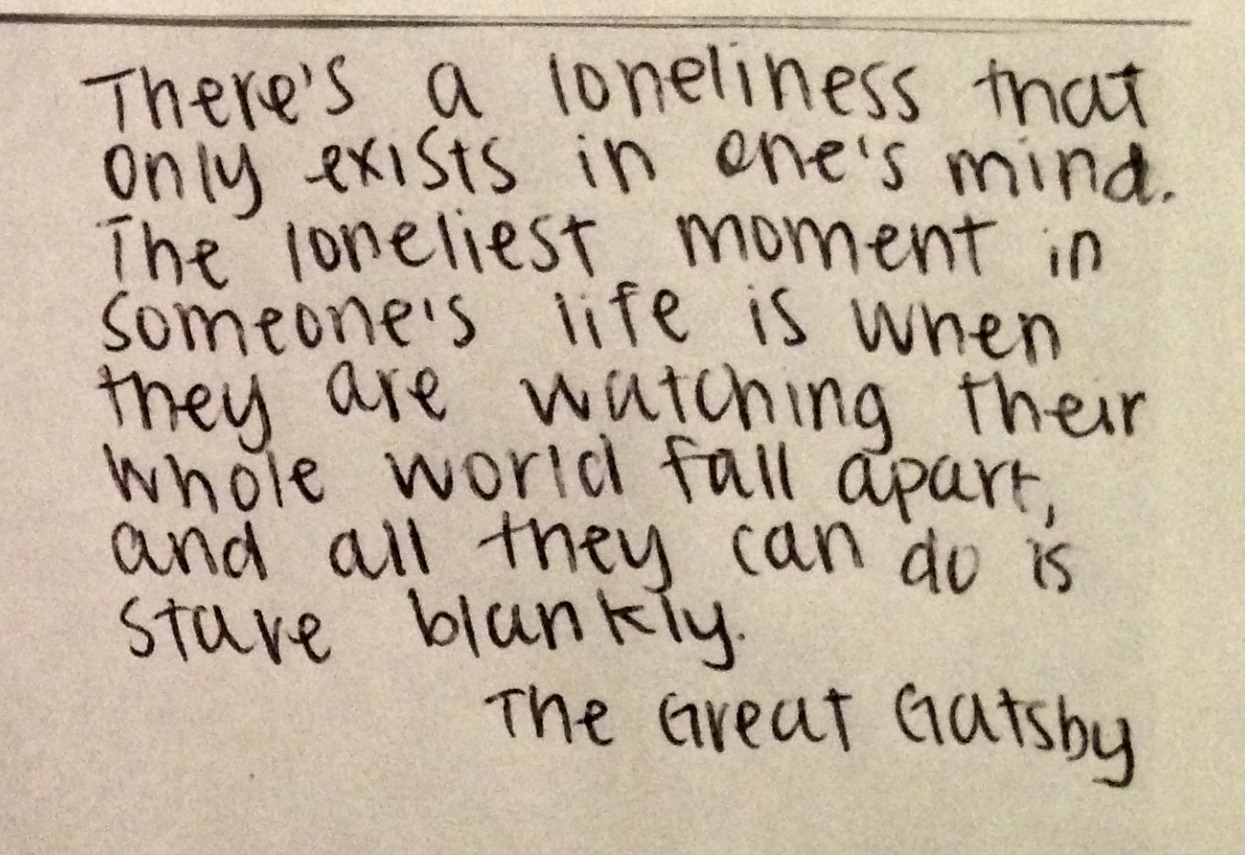 There's a loneliness that
only exists in one's mind.
The loneliest moment in
someone's life is when
they are watching their
whole world fall apart,
and all they can do is
stare blankly.
The Great Gatsby